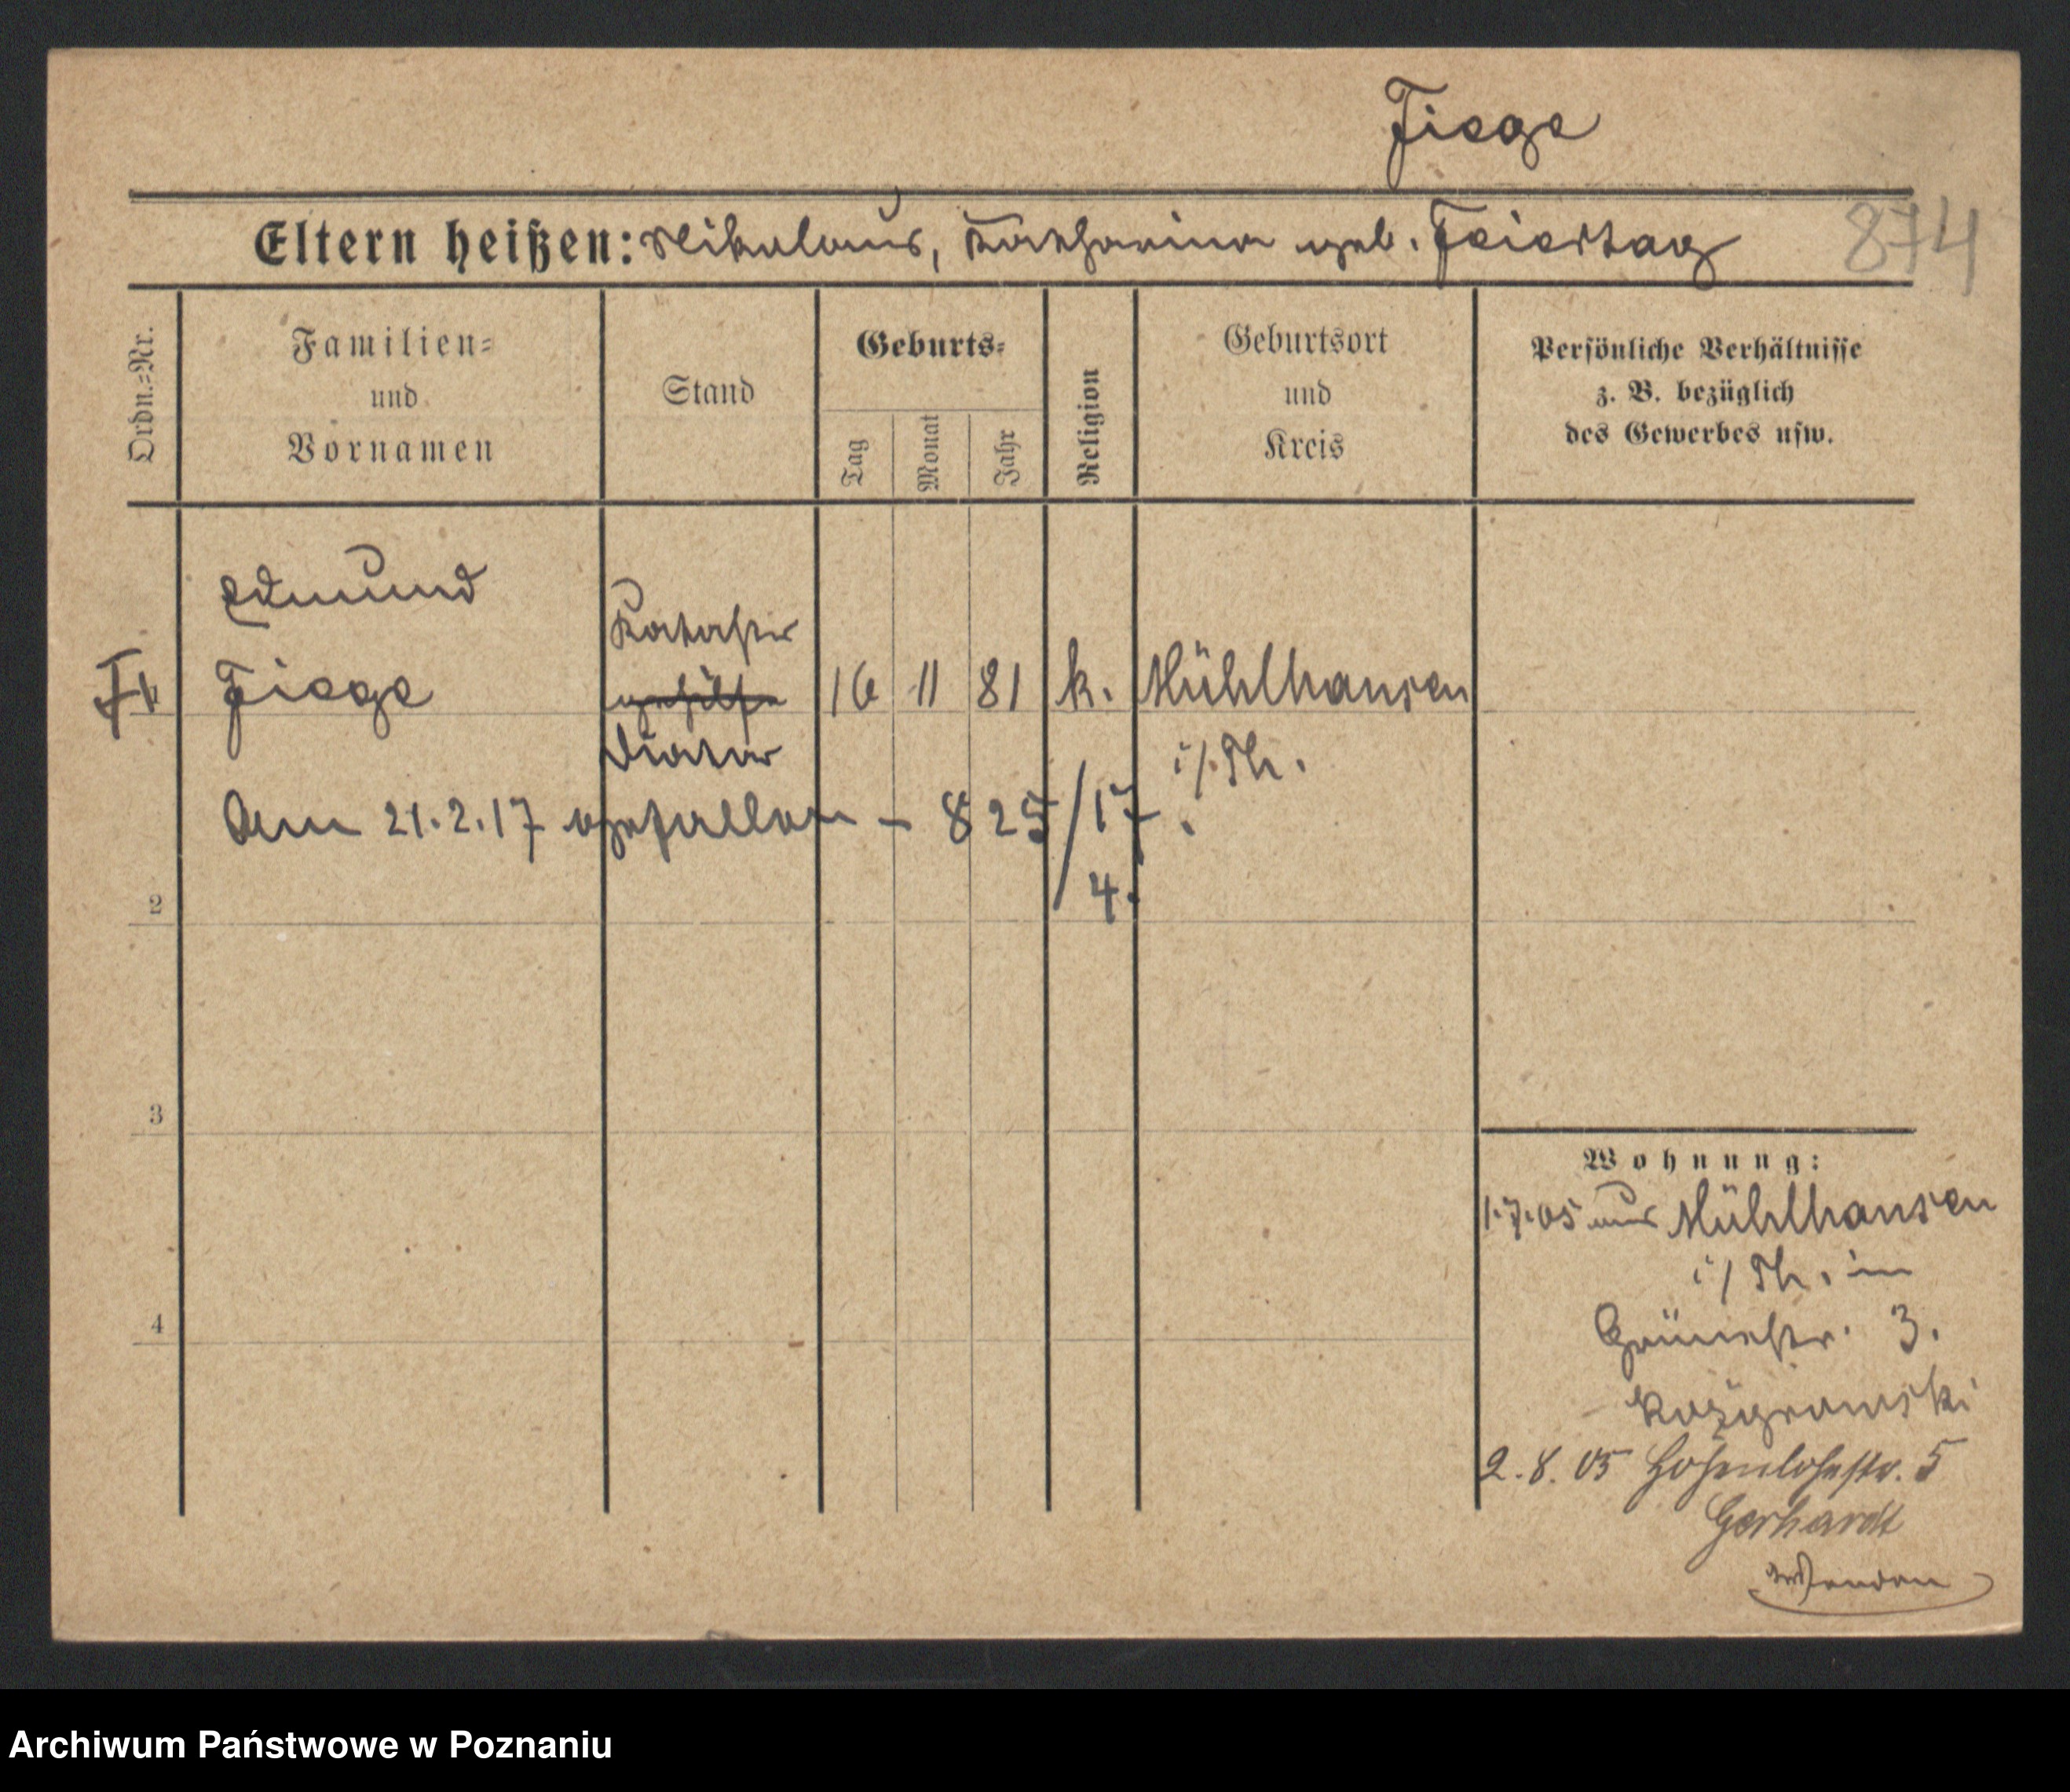 Fiege
Eltern heißen: Nikolaus, Katharina geb. Feiertag
874
Ordn.-Nr.
Familien-
und
Vornamen
Stand
Geburts-
Tag
Monat
Jahr
Religion
Geburtsort
und
Kreis
Persönliche Verhältnisse
z. B. bezüglich
des Gewerbes usw.
Edmund
Kataster
Fiege
gehilfe
16 11 81 k. Mühlhausen
Diätar
i/Th.
Am 21.2.17 gefallen – 825/17.
4.
2
3
4
Wohnung:
1.7.05 aus Mühlhausen
i/Th. in
Grünestr. 3.
2.8.05 Hohenlohestr. 5
Gerhardt
Archiwum Państwowe w Poznaniu